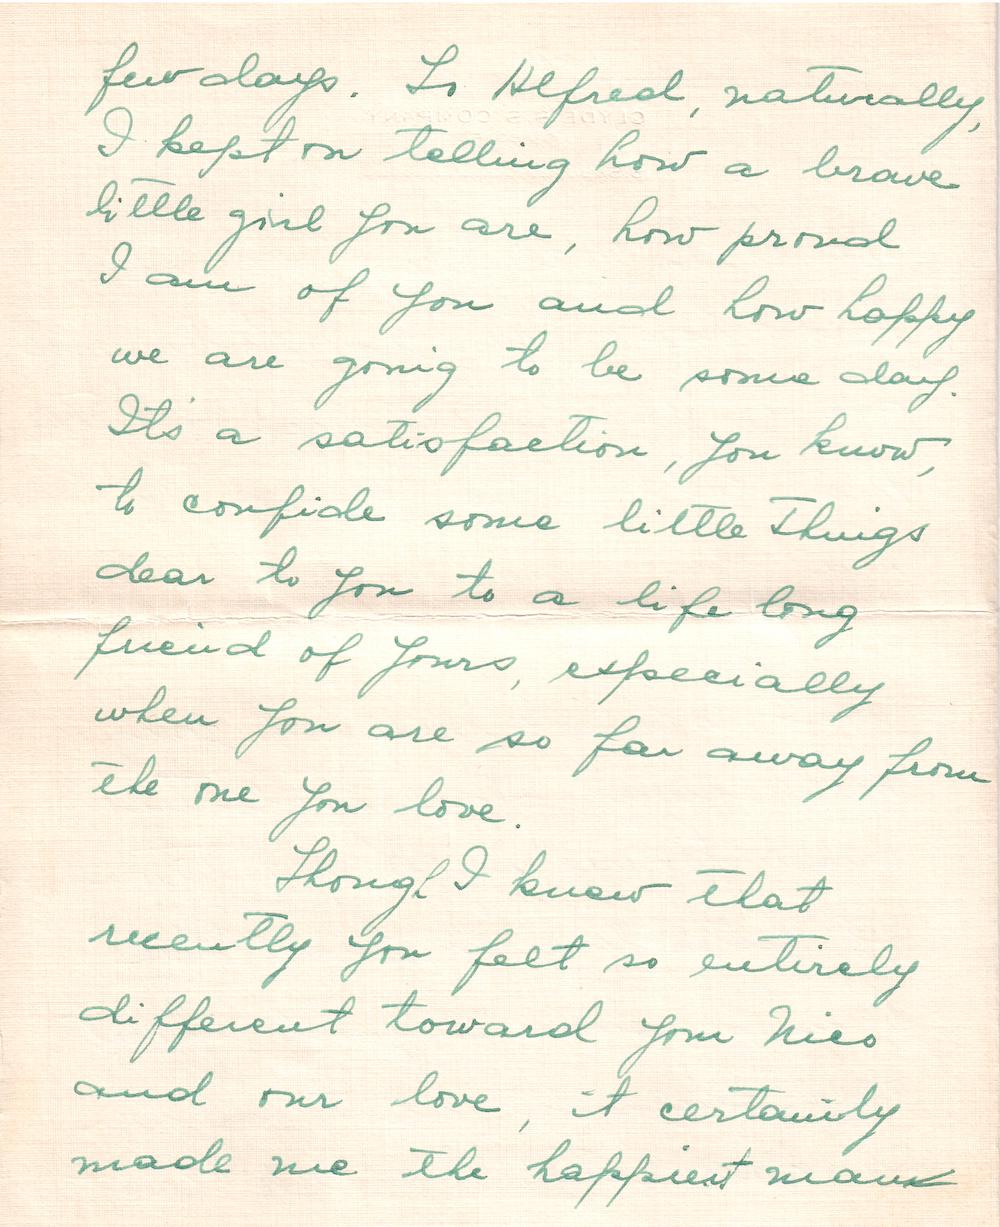 few days. To Alfred, naturally,
I kept on telling how a brave
little girl you are, how proud
I am of you and how happy
we are going to be some day.
It's a satisfaction, you know,
to confide some little things
dear to you to a life long
friend of yours, especially
when you are so far away from
the one you love.
Though I knew that
recently you felt so entirely
different toward your Nico
and our love, it certainly
made me the happiest man